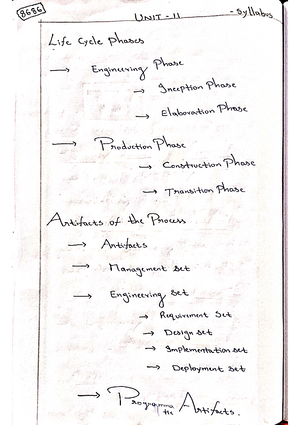 8686
UNIT - II
- Syllabus
Life Cycle Phases
→ Engineering Phase
→ Inception Phase
→ Elaboration Phase
→ Production Phase
→ Construction Phase
→ Transition Phase
Artifacts of the Process
→ Artifacts
→ Management set
→ Engineering set
→ Requirement Set
→ Design set
→ Implementation set
→ Deployment set
→ Artifacts.